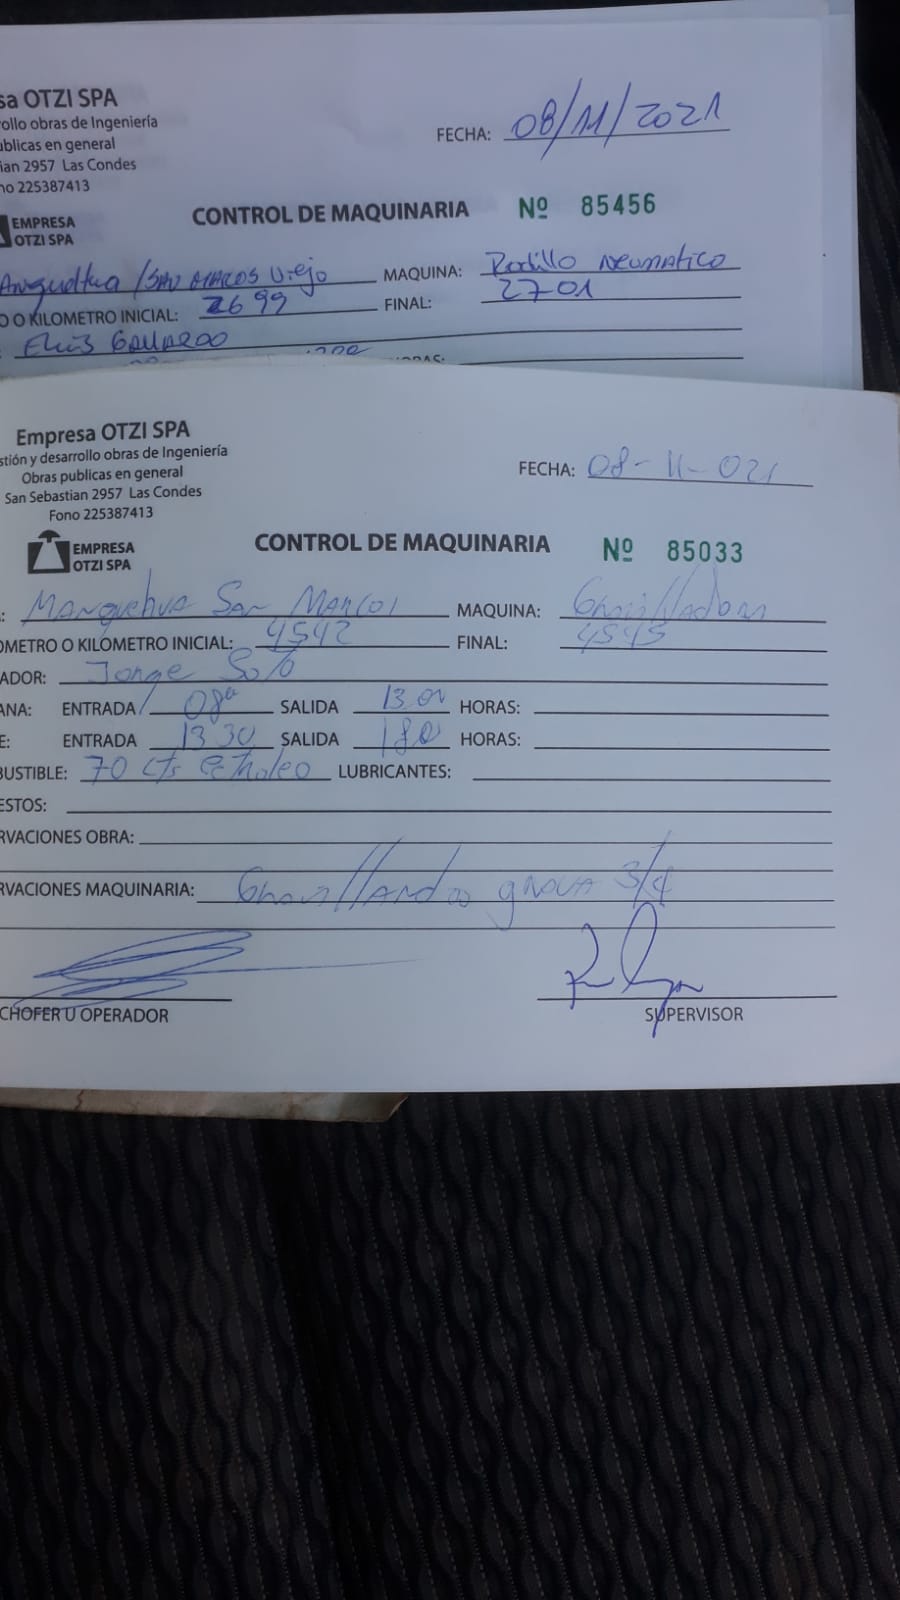 sa OTZI SPA
rollo obras de Ingeniería
ublicas en general
ian 2957 Las Condes
no 225387413
FECHA: 08/11/2021
EMPRESA
OTZI SPA
CONTROL DE MAQUINARIA Nº 85456
/San Marcos Viejo MAQUINA: Rodillo Neumatico
O O KILOMETRO INICIAL: 2699 FINAL: 2701
Gallardo
Empresa OTZI SPA
stión y desarrollo obras de Ingeniería
Obras publicas en general
San Sebastian 2957 Las Condes
Fono 225387413
FECHA: 08-11-021
EMPRESA
OTZI SPA
CONTROL DE MAQUINARIA Nº 85033
: Manquehua San Marcos MAQUINA: Gravilladora
OMETRO O KILOMETRO INICIAL: 4542 FINAL: 4545
ADOR: Jorge Soto
ANA: ENTRADA 08 SALIDA 13 00 HORAS:
E: ENTRADA 13 30 SALIDA 18 0 HORAS:
BUSTIBLE: 70 Lts Petroleo LUBRICANTES:
ESTOS:
RVACIONES OBRA:
RVACIONES MAQUINARIA: Gravillando grava 3/4
CHOFER U OPERADOR SUPERVISOR